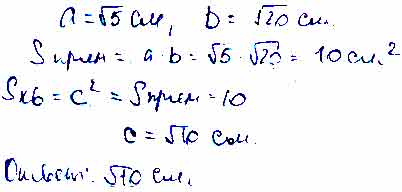 a = √5 см, b = √20 см.
Sпрям = a · b = √5 · √20 = 10 см.²
Sкв = c² = Sпрям = 10
c = √10 см.
Ответ: √10 см.